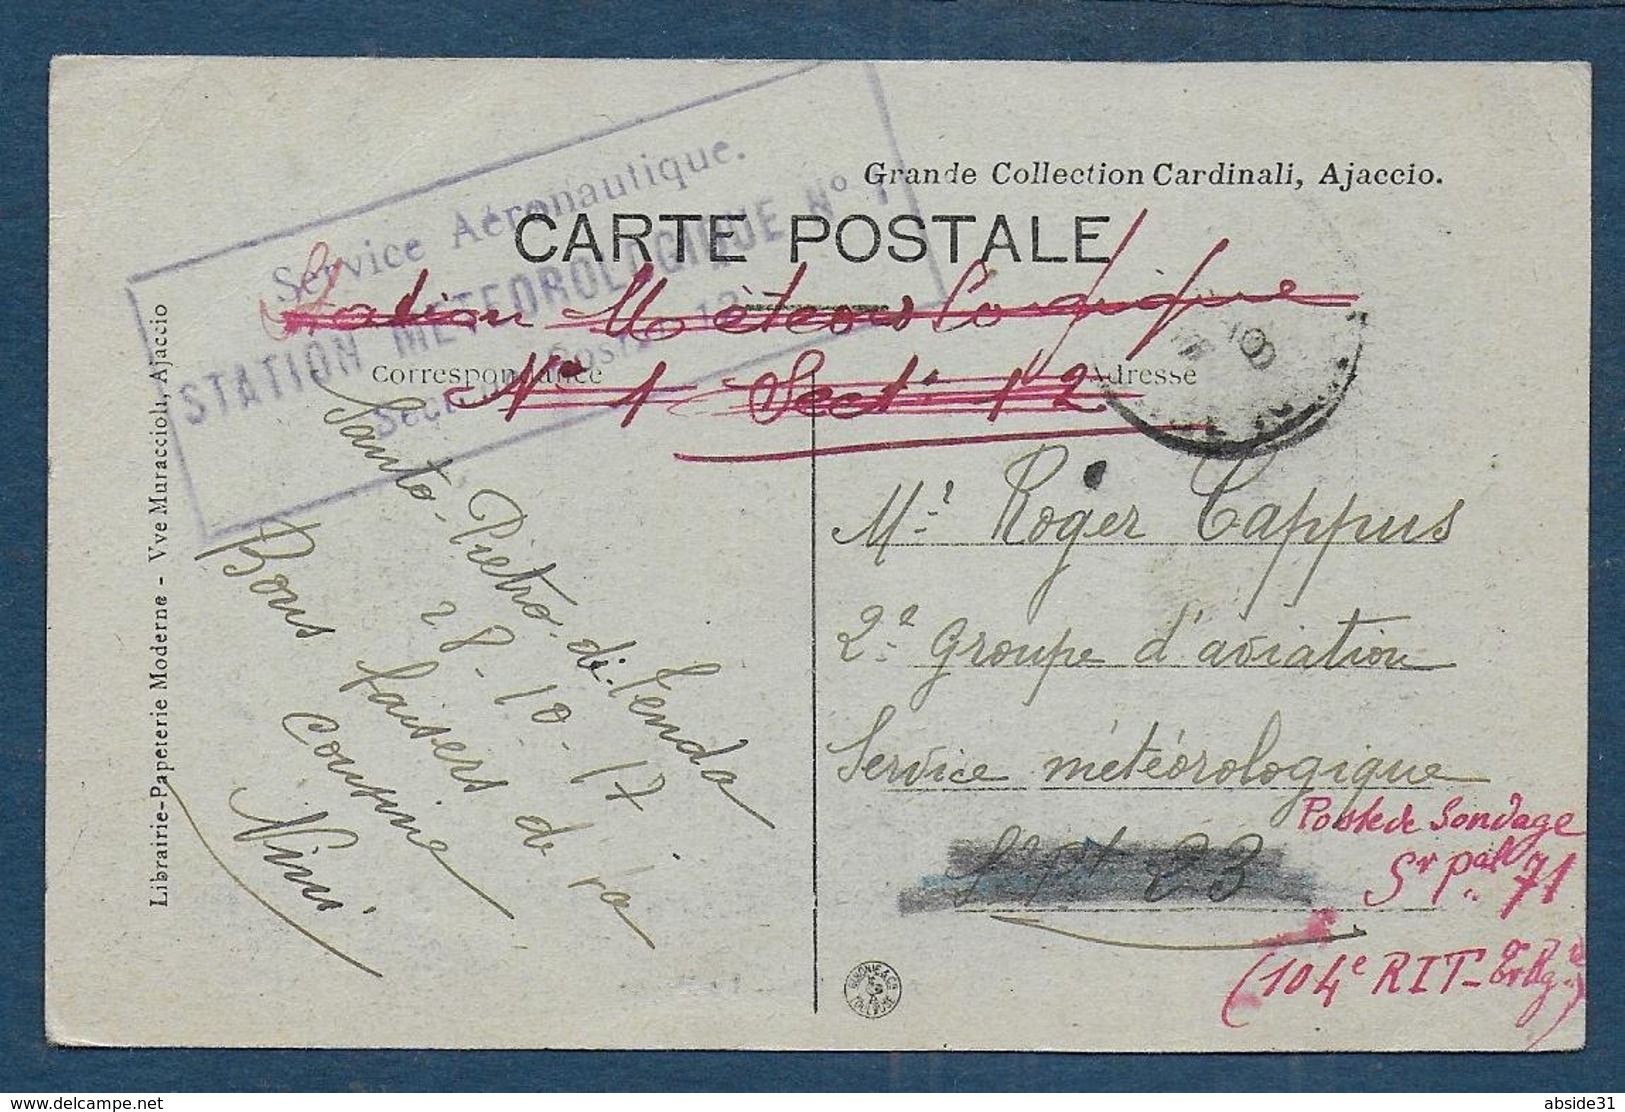 Service Aéronautique.
STATION METEOROLOGIQUE N° 1
Secteur Postal 12
Grande Collection Cardinali, Ajaccio.
CARTE POSTALE
Station Météorologique
N° 1 Sect. 12
Correspondance
Adresse
Librairie-Papeterie Moderne - Vve Muraccioli, Ajaccio
Santo-Pietro-di-Tenda
28-10-17
Bons baisers de ra
cousine
Nini
Mr. Roger Cappus
2e Groupe d'aviation
Service météorologique
Sept. 23
Poste de Sondage
Sr pal. 71
(104e RIT-
LABOUCHE
TOULOUSE
abside31
delcampe.net